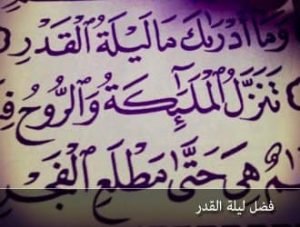 وَمَآ أَدْرَىٰكَ مَا لَيْلَةُ ٱلْقَدْرِ
تَنَزَّلُ ٱلْمَلَـٰٓئِكَةُ وَٱلرُّوحُ
هِىَ حَتَّىٰ مَطْلَعِ ٱلْفَجْرِ
فضل ليلة القدر